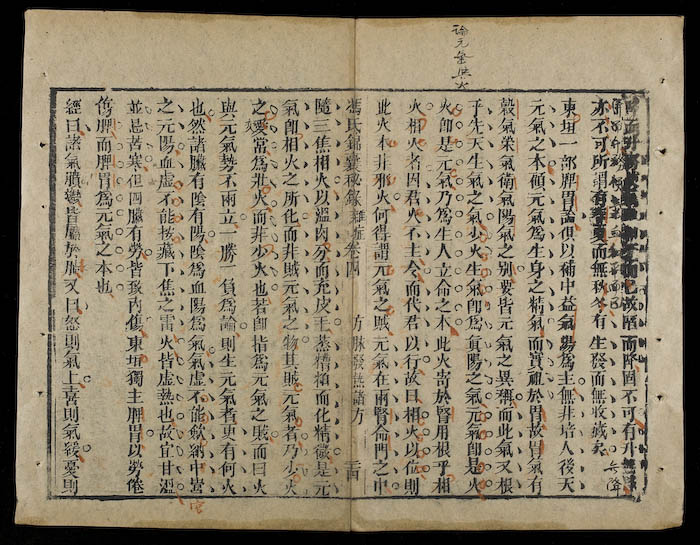 論元氣與火
而已故降而降固不可有升無降
亦不可所謂有春夏而無秋冬有生發而無收藏矣
東垣一部脾胃論俱以補中益氣湯為主無非培人後天
元氣之本頋元氣為生身之精氣而實祖於胃故胃氣有
穀氣榮氣衛氣陽氣之別要皆元氣之異稱而此氣又根
于先天生氣之少火生氣卽為眞陽之氣元氣卽是火
火卽是元氣乃為生人立命之本此火寄於腎用根乎相
火相火者因君火不主令而代君以行故曰相火以位則
此火本非邪火何得謂元氣之賊元氣在兩腎命門之中
馮氏錦囊秘錄 雜症卷四 方脉發熱諸方
隨三焦相火以溫肉分而充皮毛蒸糟粕而化精微是元
氣卽相火之所化而非賊元氣之物其賊元氣者乃少火
之變常為壯火而非少火也若卽指為元氣之賊而曰火
與元氣勢不兩立一勝一負為論則生元氣者更有何火
也然諸臟有陰有陽陰為血陽為氣氣虛不能歛納中焦
之元陽血虛不能按藏下焦之雷火皆虛熱也故宜甘溫
並忌苦寒但四臟有勞皆致內傷東垣獨主脾胃以勞倦
傷脾而脾胃為元氣之本也
經曰諸氣膹鬱皆屬於肺又曰怒則氣上喜則氣緩憂則